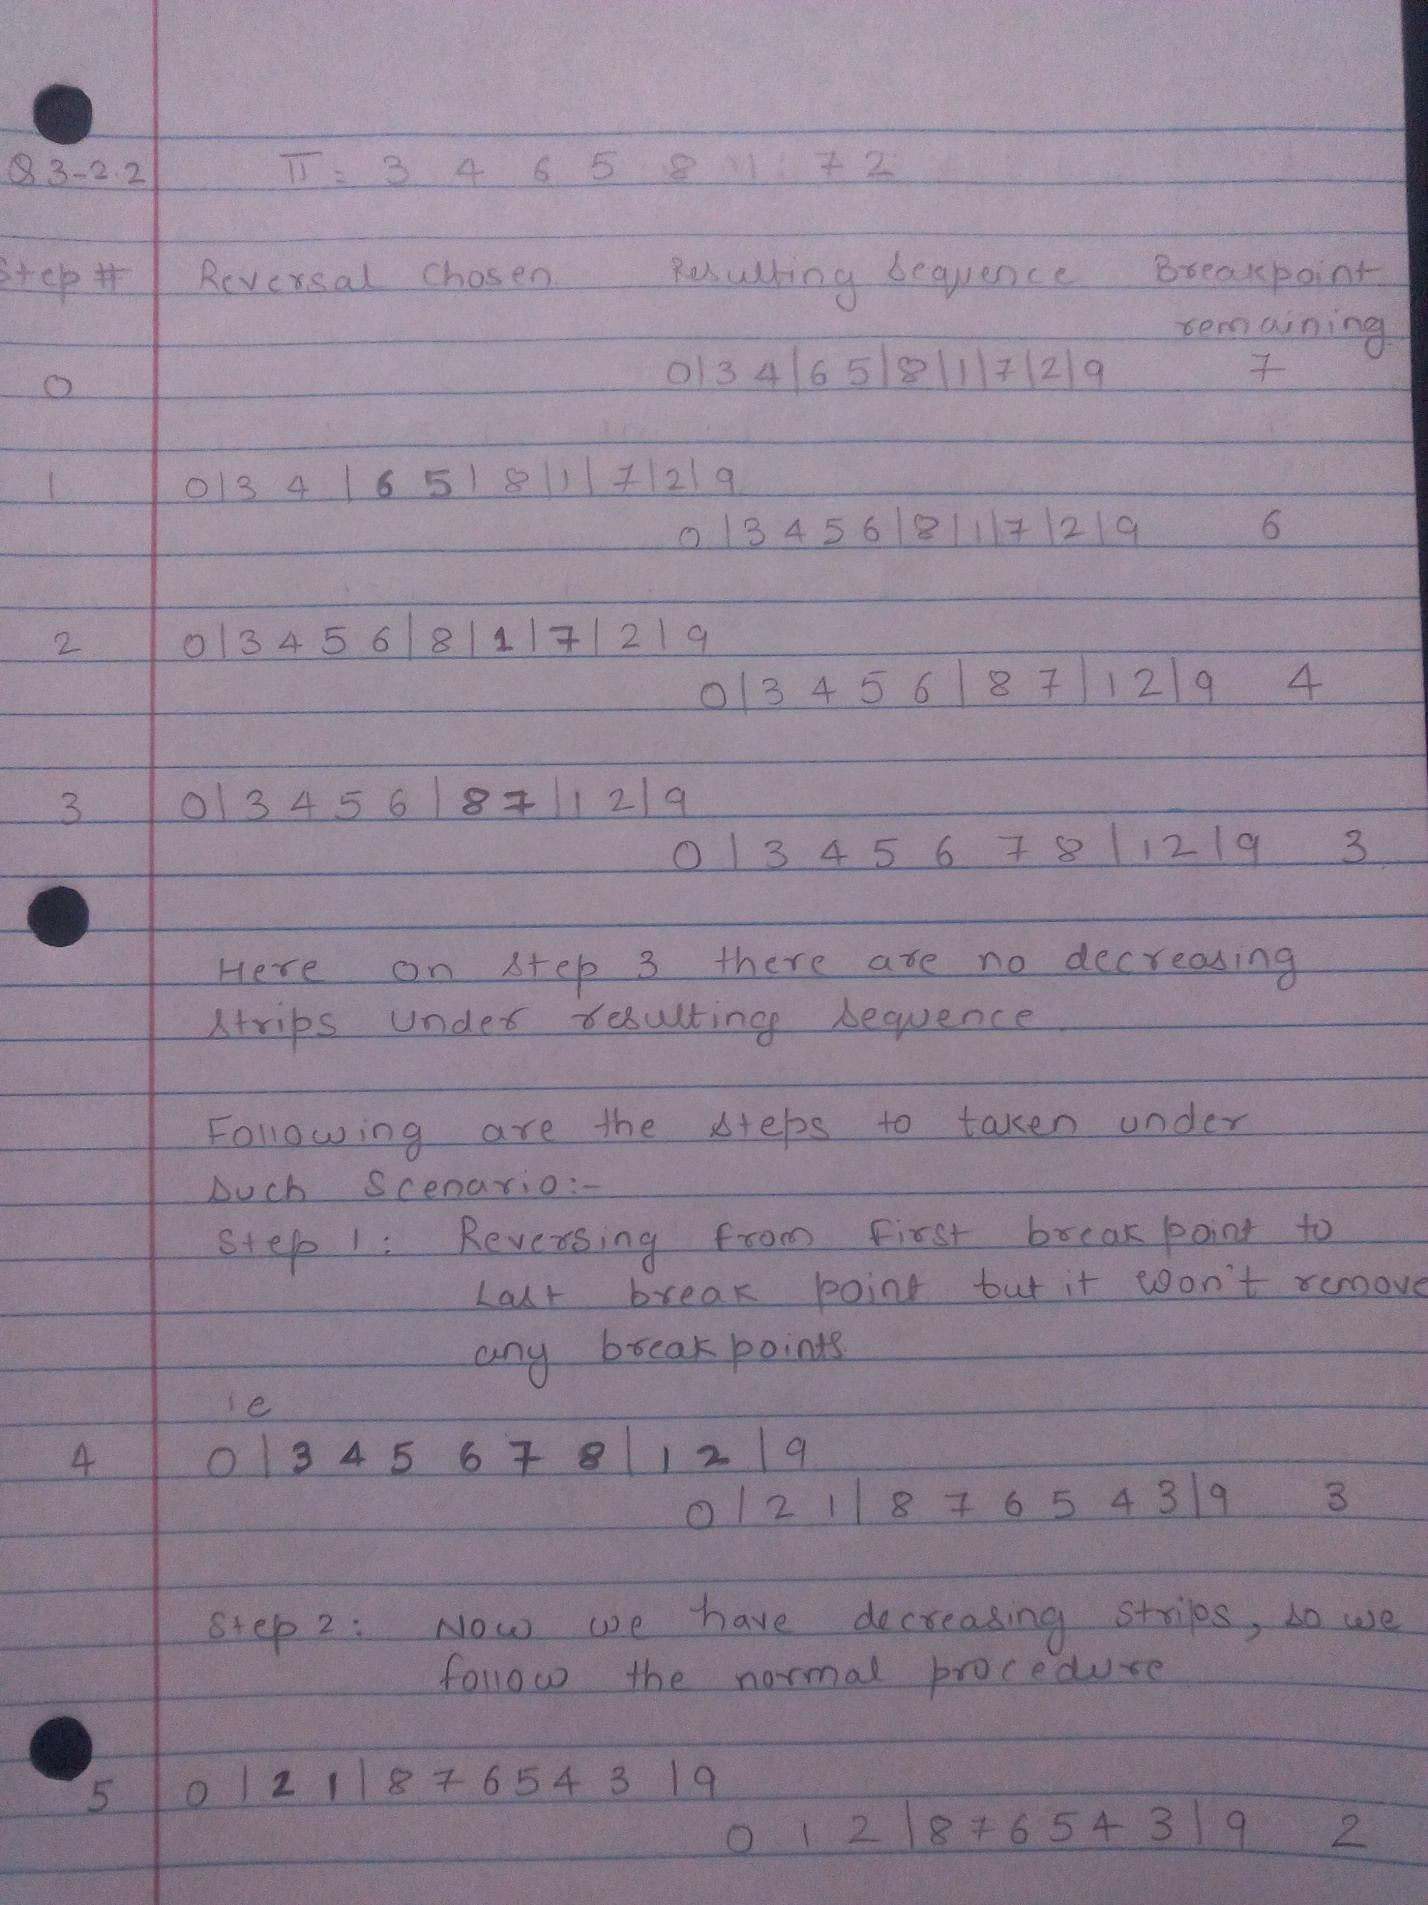 Q 3-2.2 Π = 3 4 6 5 8 1 7 2
Step # Reversal Chosen Resulting Sequence Breakpoint
remaining
0 0|3 4|6 5|8|1|7|2|9 7
1 0|3 4|6 5|8|1|7|2|9
0|3 4 5 6|8|1|7|2|9 6
2 0|3 4 5 6|8|1|7|2|9
0|3 4 5 6|8 7|1 2|9 4
3 0|3 4 5 6|8 7|1 2|9
0|3 4 5 6 7 8|1 2|9 3
Here on step 3 there are no decreasing
strips under resulting sequence
Following are the steps to taken under
such scenario:-
Step 1: Reversing from first break point to
Last break point but it won't remove
any breakpoints
ie
4 0|3 4 5 6 7 8|1 2|9
0|2 1|8 7 6 5 4 3|9 3
Step 2: Now we have decreasing strips, so we
follow the normal procedure
5 0|2 1|8 7 6 5 4 3|9
0 1 2|8 7 6 5 4 3|9 2